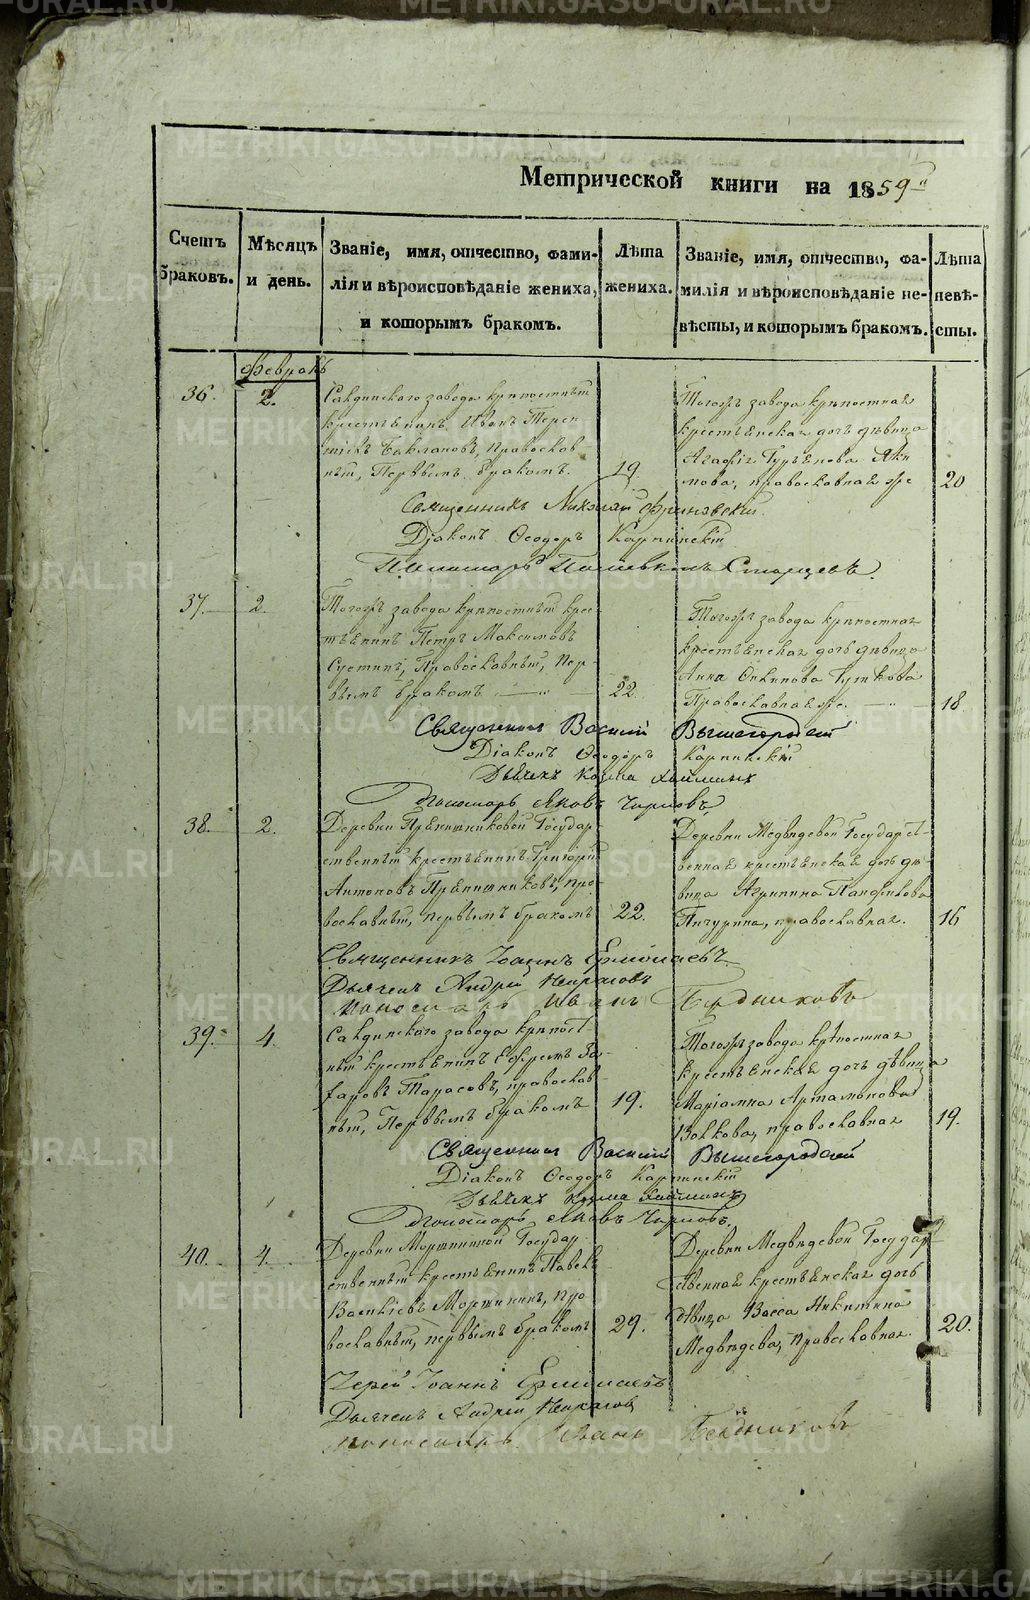 METRIKI.GASO-URAL.RU
Метрической книги на 1859 й
Счетъ браковъ.
Мѣсяцъ и день.
Званіе, имя, отчество, фами-
лія и вѣроисповѣданіе жениха,
и которымъ бракомъ.
Лѣта
жениха.
Званіе, имя, отчество, фа-
милія и вѣроисповѣданіе не-
вѣсты, и которымъ бракомъ.
Лѣта
невѣ-
сты.
Февраль
36.
2.
Салдинскаго завода крѣпостный
крестьянинъ, Иванъ Терен
тіевъ Баклановъ, Православ-
ный, Первымъ бракомъ.
19.
Тогожъ завода крѣпостная
крестьянская дочь дѣвица
Агафія Гурьянова
мова, православная
20
Священникъ Николай
Діаконъ Ѳеодоръ Карпинскій
Пономарь Старцевъ.
37.
2.
Тогожъ завода крѣпостный крес-
тьянинъ Петръ Максимовъ
Православный, Пер-
вымъ бракомъ
22.
Тогожъ завода крѣпостная
крестьянская дочь дѣвица
Анна
Православная
18.
Священникъ Василій Вышегородскій
Діаконъ Ѳеодоръ Карпинскій
Дьячекъ Козма
Пономарь Яковъ Чирковъ
38.
2.
Деревни Прянишниковой Государ-
ственный крестьянинъ Григорій
Антоновъ Прянишниковъ, пра-
вославный, первымъ бракомъ
22.
Деревни Медвѣдевой Государст-
венная крестьянская дочь дѣ-
вица Агрипина Панфилова
Пичугина, православная.
16
Священникъ Іоаннъ Ермолаевъ
Дьячекъ Андрей Некрасовъ
Пономарь Иванъ Бѣдниковъ
39.
4.
Салдинскаго завода крѣпост-
ный крестьянинъ Ефремъ За-
харовъ Тарасовъ, православ-
ный, Первымъ бракомъ
19.
Тогожъ завода крѣпостная
крестьянская дочь дѣвица
Маріамна Артамонова
Волкова, православная
19.
Священникъ Василій Вышегородскій
Діаконъ Ѳеодоръ Карпинскій
Дьячекъ Козма
Пономарь Яковъ Чирковъ.
40.
4.
Деревни Моршининой Государ-
ственный крестьянинъ Павелъ
Василіевъ Моршининъ, пра
вославный, первымъ бракомъ
29.
Деревни Медвѣдевой Государ-
ственная крестьянская дочь
дѣвица Васса Никитина
Медвѣдева, Православная.
20.
Іерей Іоаннъ Ермолаевъ
Дьячекъ Андрей Некрасовъ
Пономарь Иванъ Бѣдниковъ